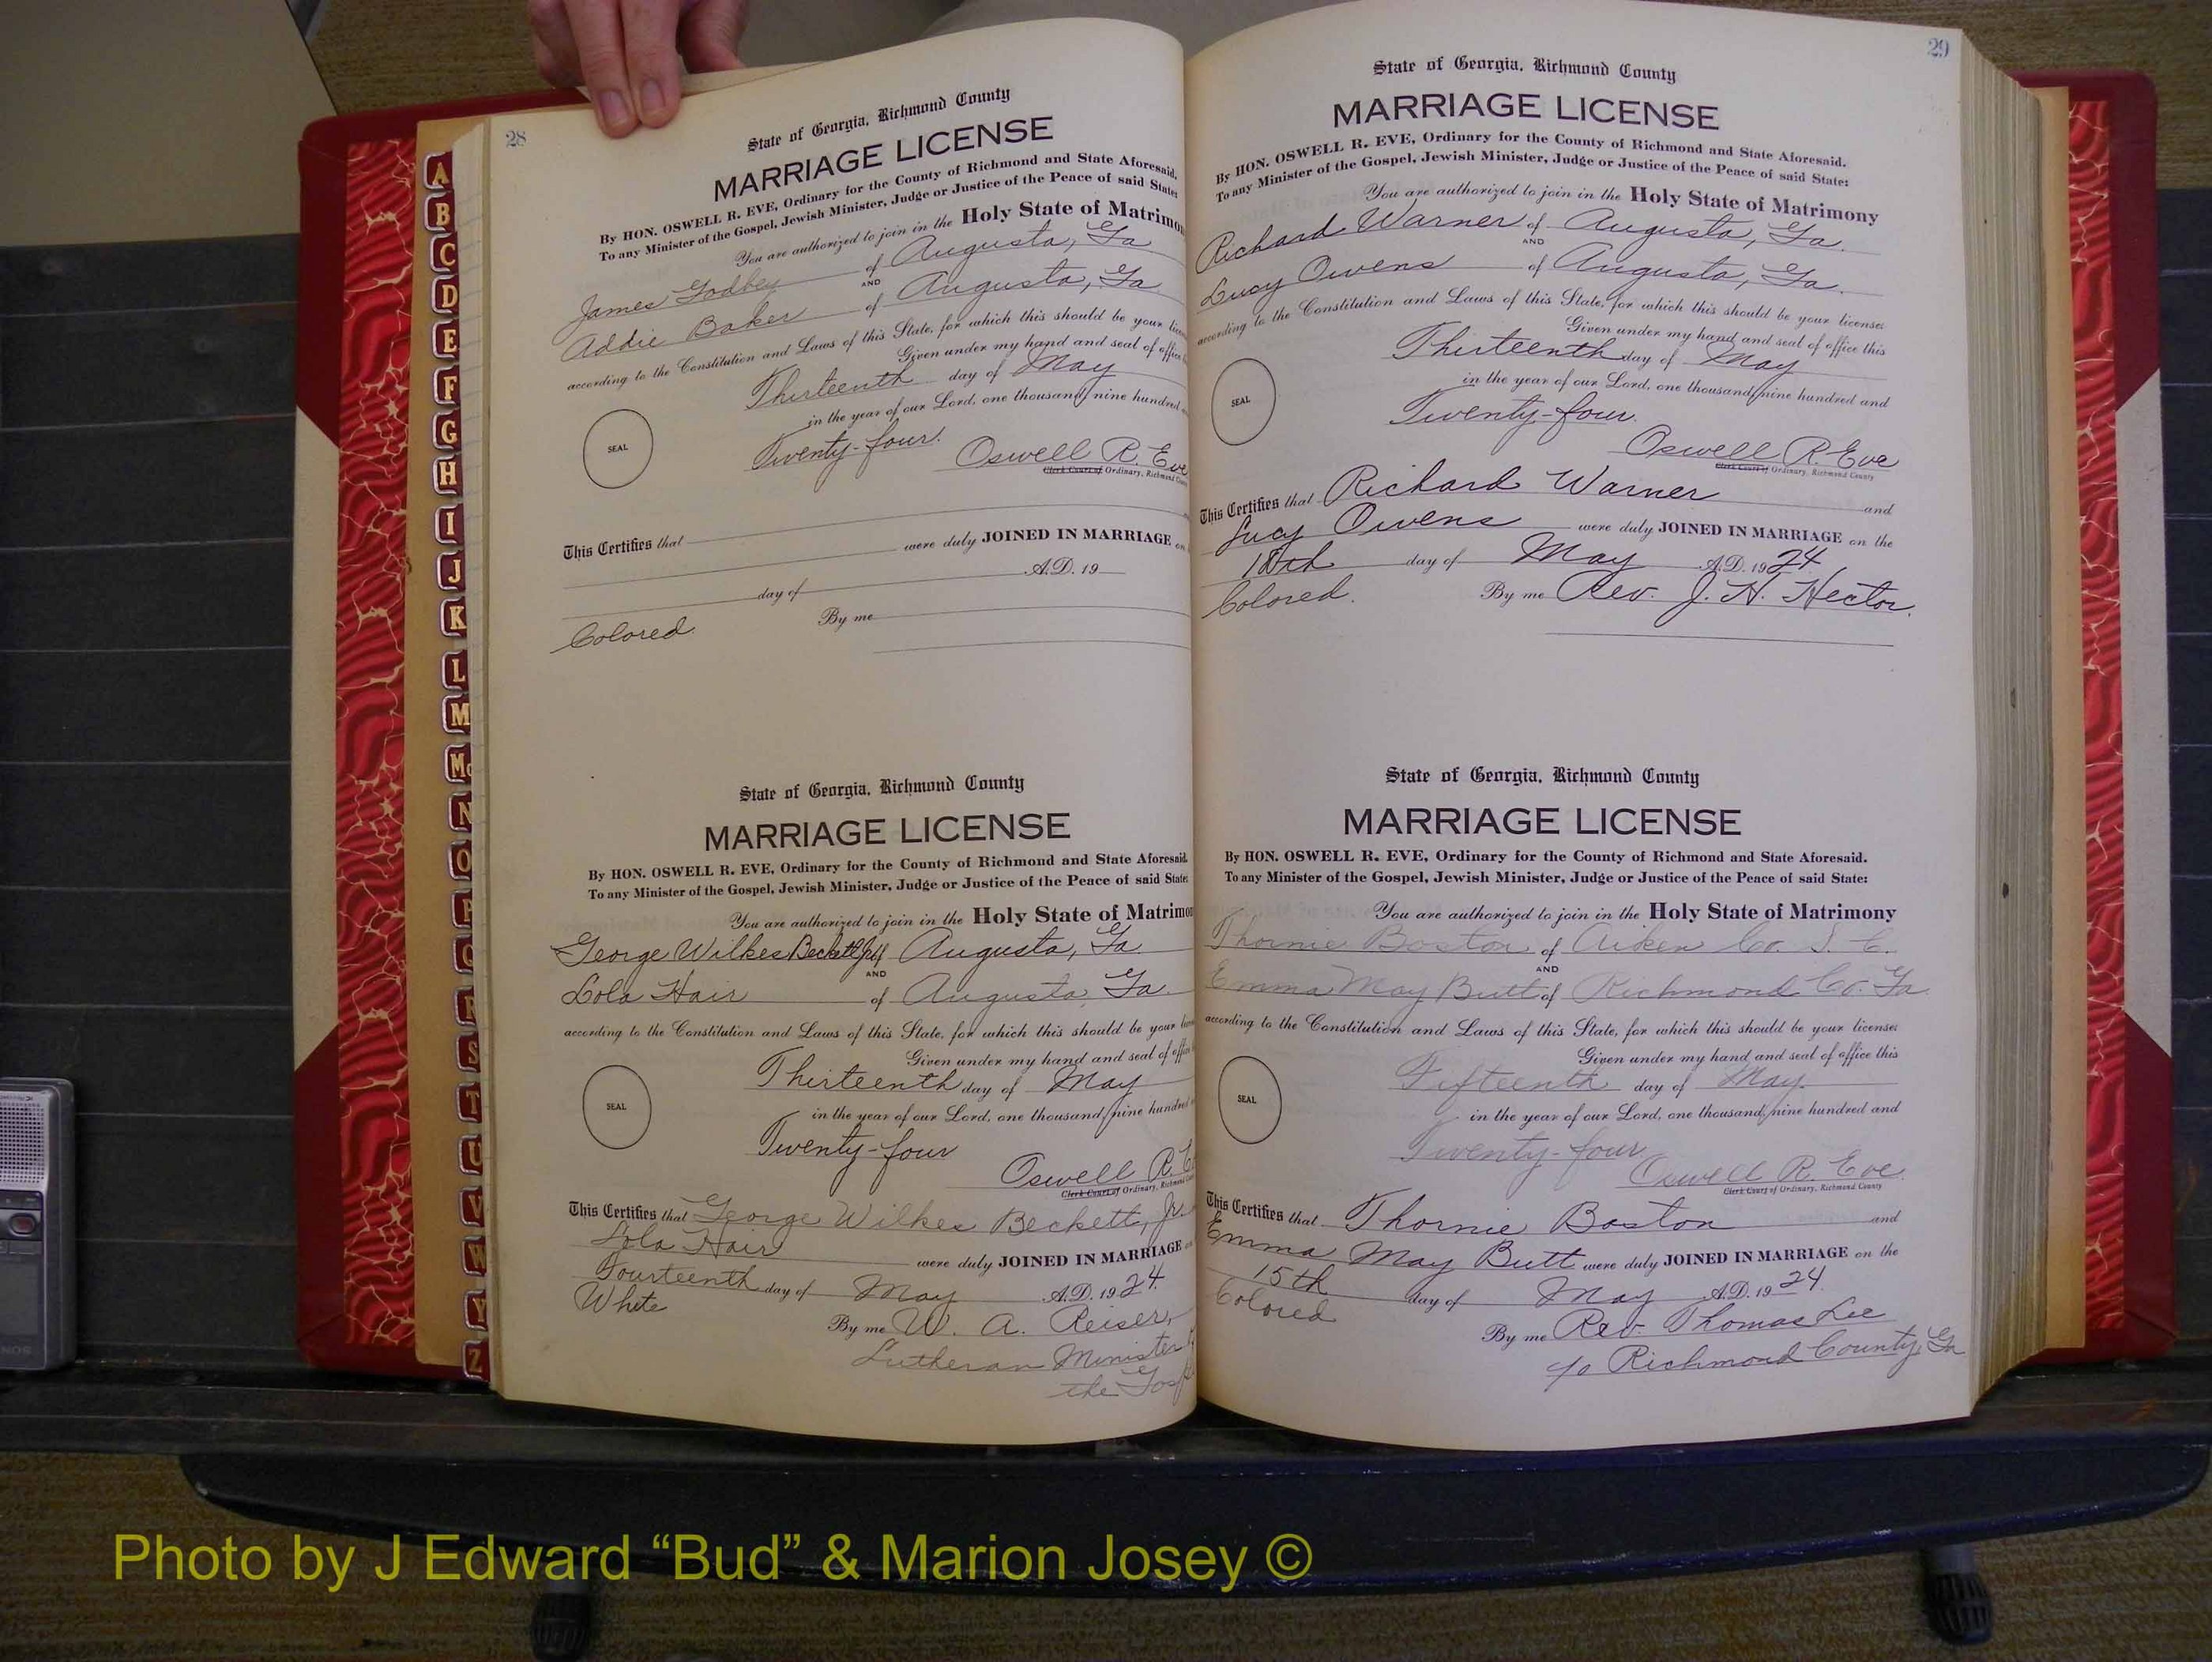 28
State of Georgia, Richmond County
MARRIAGE LICENSE
By HON. OSWELL R. EVE, Ordinary for the County of Richmond and State Aforesaid.
To any Minister of the Gospel, Jewish Minister, Judge or Justice of the Peace of said State:
You are authorized to join in the Holy State of Matrimo
James Godbey of Augusta, Ga
AND
Addie Baker of Augusta, Ga
according to the Constitution and Laws of this State, for which this should be your
Given under my hand and seal of office
Thirteenth day of May
in the year of our Lord, one thousand nine hundred
SEAL
Twenty-four.
Oswell R. Eve
Clerk Court of Ordinary, Richmond County
This Certifies that
were duly JOINED IN MARRIAGE on
day of A.D. 19
Colored By me
State of Georgia, Richmond County
MARRIAGE LICENSE
By HON. OSWELL R. EVE, Ordinary for the County of Richmond and State Aforesaid.
To any Minister of the Gospel, Jewish Minister, Judge or Justice of the Peace of said State:
You are authorized to join in the Holy State of Matrimo
George Wilkes Beckett Jr of Augusta, Ga
AND
Lola Hair of Augusta, Ga.
according to the Constitution and Laws of this State, for which this should be your
Given under my hand and seal of office
Thirteenth day of May
SEAL
in the year of our Lord, one thousand nine hundred
Twenty-four
Oswell R. E
Clerk Court of Ordinary, Richmond
This Certifies that George Wilkes Beckett, Jr.
Lola Hair were duly JOINED IN MARRIAGE
Fourteenth day of May A.D. 1924.
White By me W. A. Reiser,
Lutheran Minister
the Gosp
29
State of Georgia, Richmond County
MARRIAGE LICENSE
By HON. OSWELL R. EVE, Ordinary for the County of Richmond and State Aforesaid.
To any Minister of the Gospel, Jewish Minister, Judge or Justice of the Peace of said State:
You are authorized to join in the Holy State of Matrimony
Richard Warner of Augusta, Ga.
AND
Lucy Owens of Augusta, Ga.
according to the Constitution and Laws of this State, for which this should be your license:
Given under my hand and seal of office this
Thirteenth day of May
in the year of our Lord, one thousand nine hundred and
SEAL
Twenty-four.
Oswell R. Eve
Clerk Court of Ordinary, Richmond County
This Certifies that Richard Warner and
Lucy Owens were duly JOINED IN MARRIAGE on the
18th day of May A.D. 1924
Colored. By me Rev. J. H. Hector.
State of Georgia, Richmond County
MARRIAGE LICENSE
By HON. OSWELL R. EVE, Ordinary for the County of Richmond and State Aforesaid.
To any Minister of the Gospel, Jewish Minister, Judge or Justice of the Peace of said State:
You are authorized to join in the Holy State of Matrimony
Thornie Boston of Aiken Co. S. C.
AND
Emma May Butt of Richmond Co. Ga
according to the Constitution and Laws of this State, for which this should be your license:
Given under my hand and seal of office this
Fifteenth day of May.
SEAL
in the year of our Lord, one thousand nine hundred and
Twenty-four
Oswell R. Eve
Clerk Court of Ordinary, Richmond County
This Certifies that Thornie Boston and
Emma May Butt were duly JOINED IN MARRIAGE on the
15th day of May A.D. 1924.
Colored By me Rev. Thomas Lee
of Richmond County, Ga
A
B
C
D
E
F
G
H
I
J
K
L
M
Mc
N
O
P
Q
R
S
T
U
V
W
Y
Z
Photo by J Edward “Bud” & Marion Josey ©